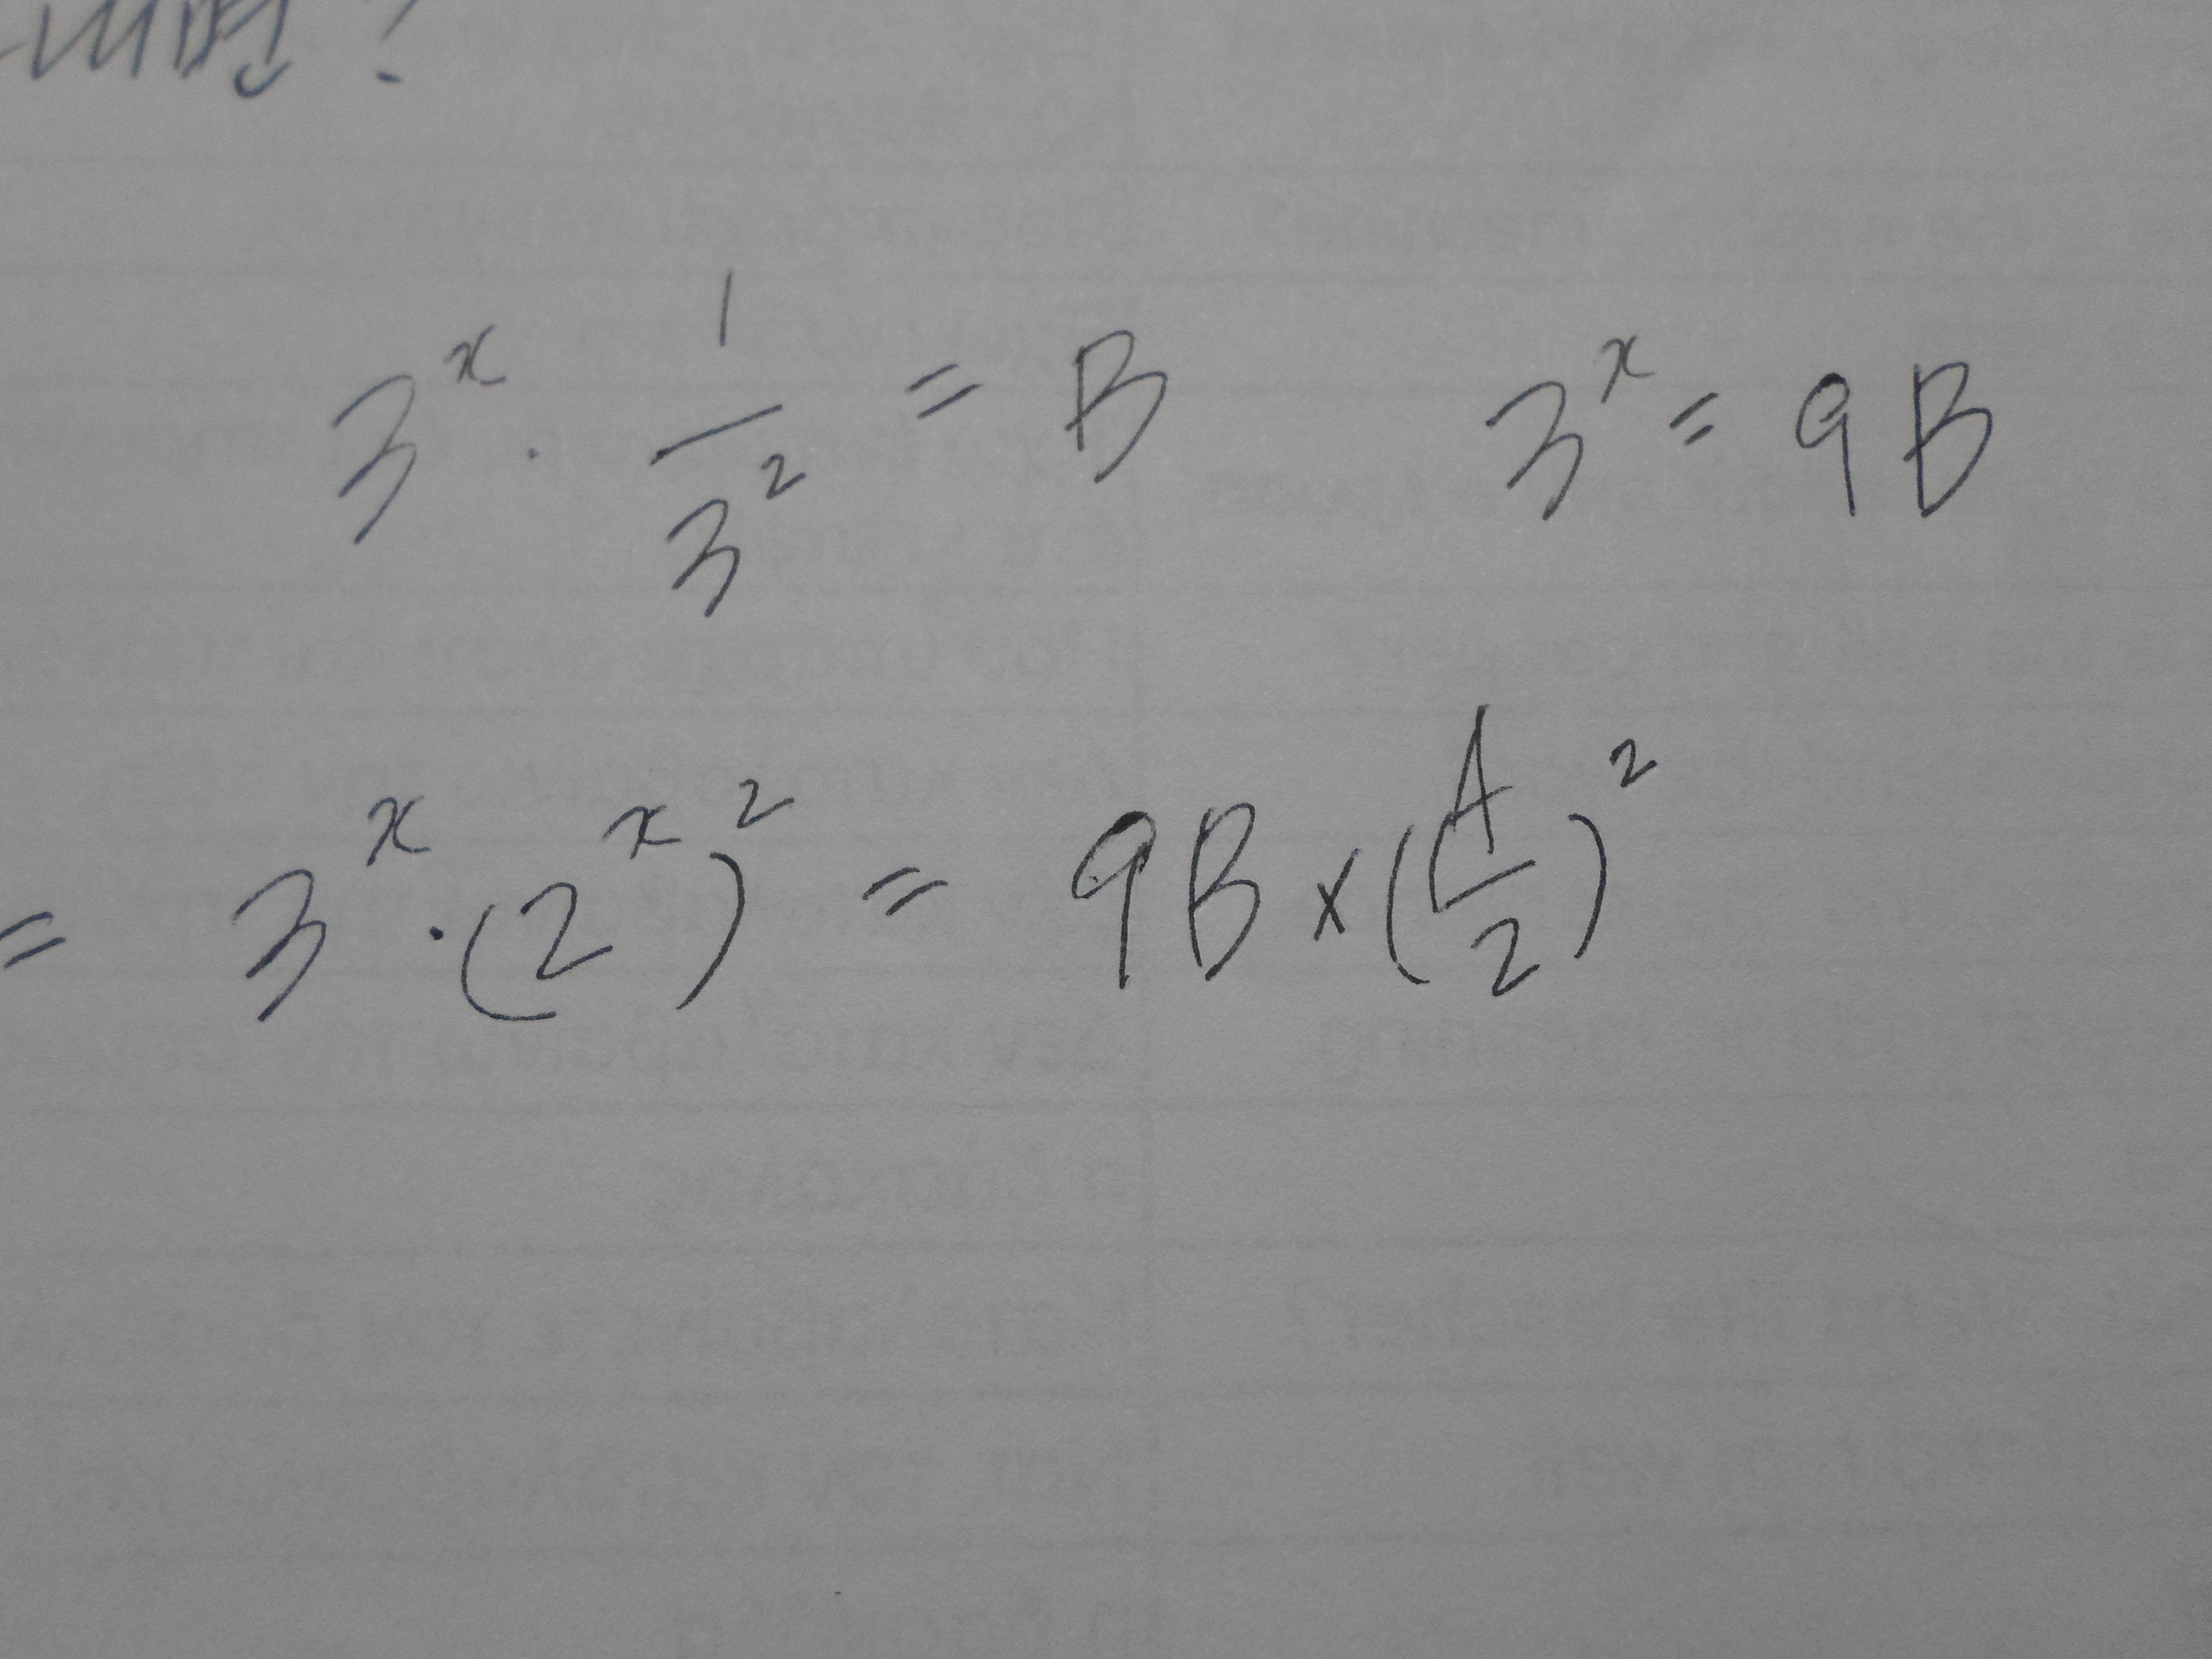 내면?
3^x · 1/3^2 = B    3^x = 9B
= 3^x · (2^x)^2 = 9B × (A/2)^2